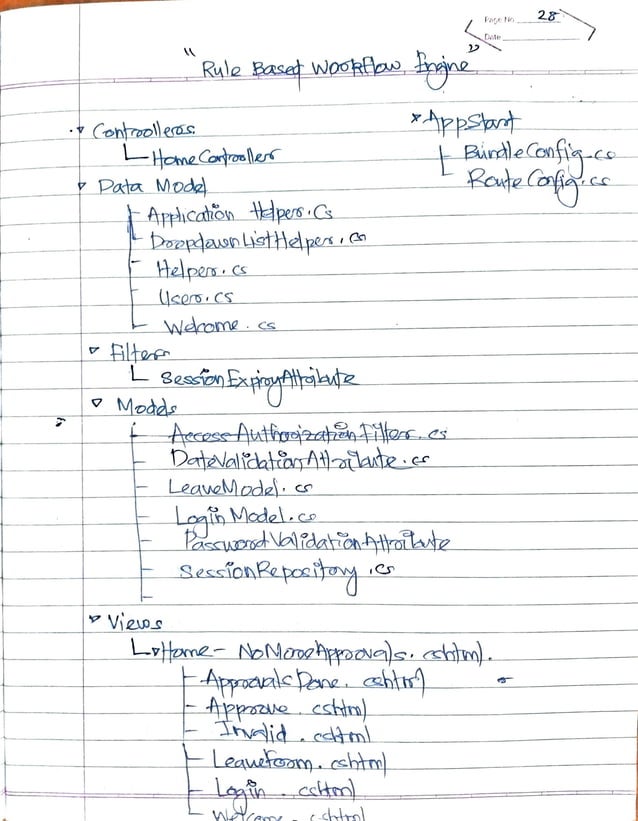 Page No. 28
Date
" Rule Based Workflow Engine "
Controllers
HomeController
Data Model
Application Helper.Cs
DropdownListHelper.cs
Helper.cs
User.cs
Welcome.cs
Filters
SessionExpiryAttribute
Models
AccessAuthorizationFilter.cs
DateValidationAttribute.cs
LeaveModel.cs
LoginModel.cs
PasswordValidationAttribute
SessionRepository.cs
Views
Home - NoMoreApprovals.cshtml.
ApprovalsDone.cshtml
Approve.cshtml
Invalid.cshtml
LeaveForm.cshtml
Login.cshtml
Welcome.cshtml
* AppStart
BundleConfig.cs
RouteConfig.cs